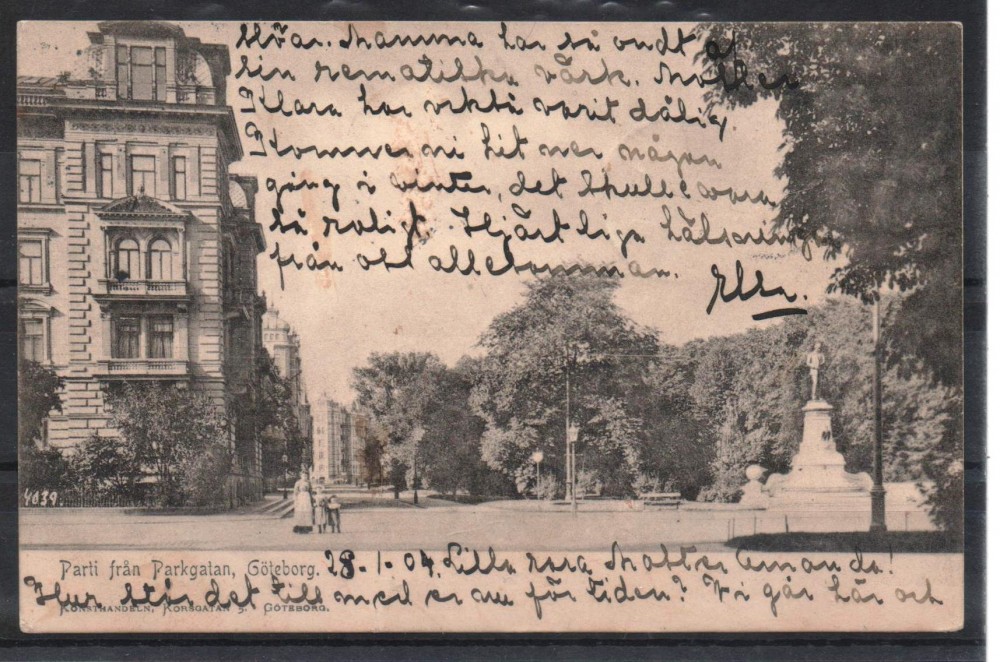 slöar. Mamma har så ondt af
sin rematiska värk. Moster
Klara har också varit dålig.
Kommer ni hit ner någon
gång i vinter, det skulle vara
så roligt. Hjärtliga hälsningar
från oss allesamman.
Ella.
4039
Parti från Parkgatan, Göteborg. 28-1-04. Lilla rara Moster Amanda!
Hur står det till med er nu för tiden? Vi går här och
KONSTHANDELN, KORSGATAN 5. GÖTEBORG.